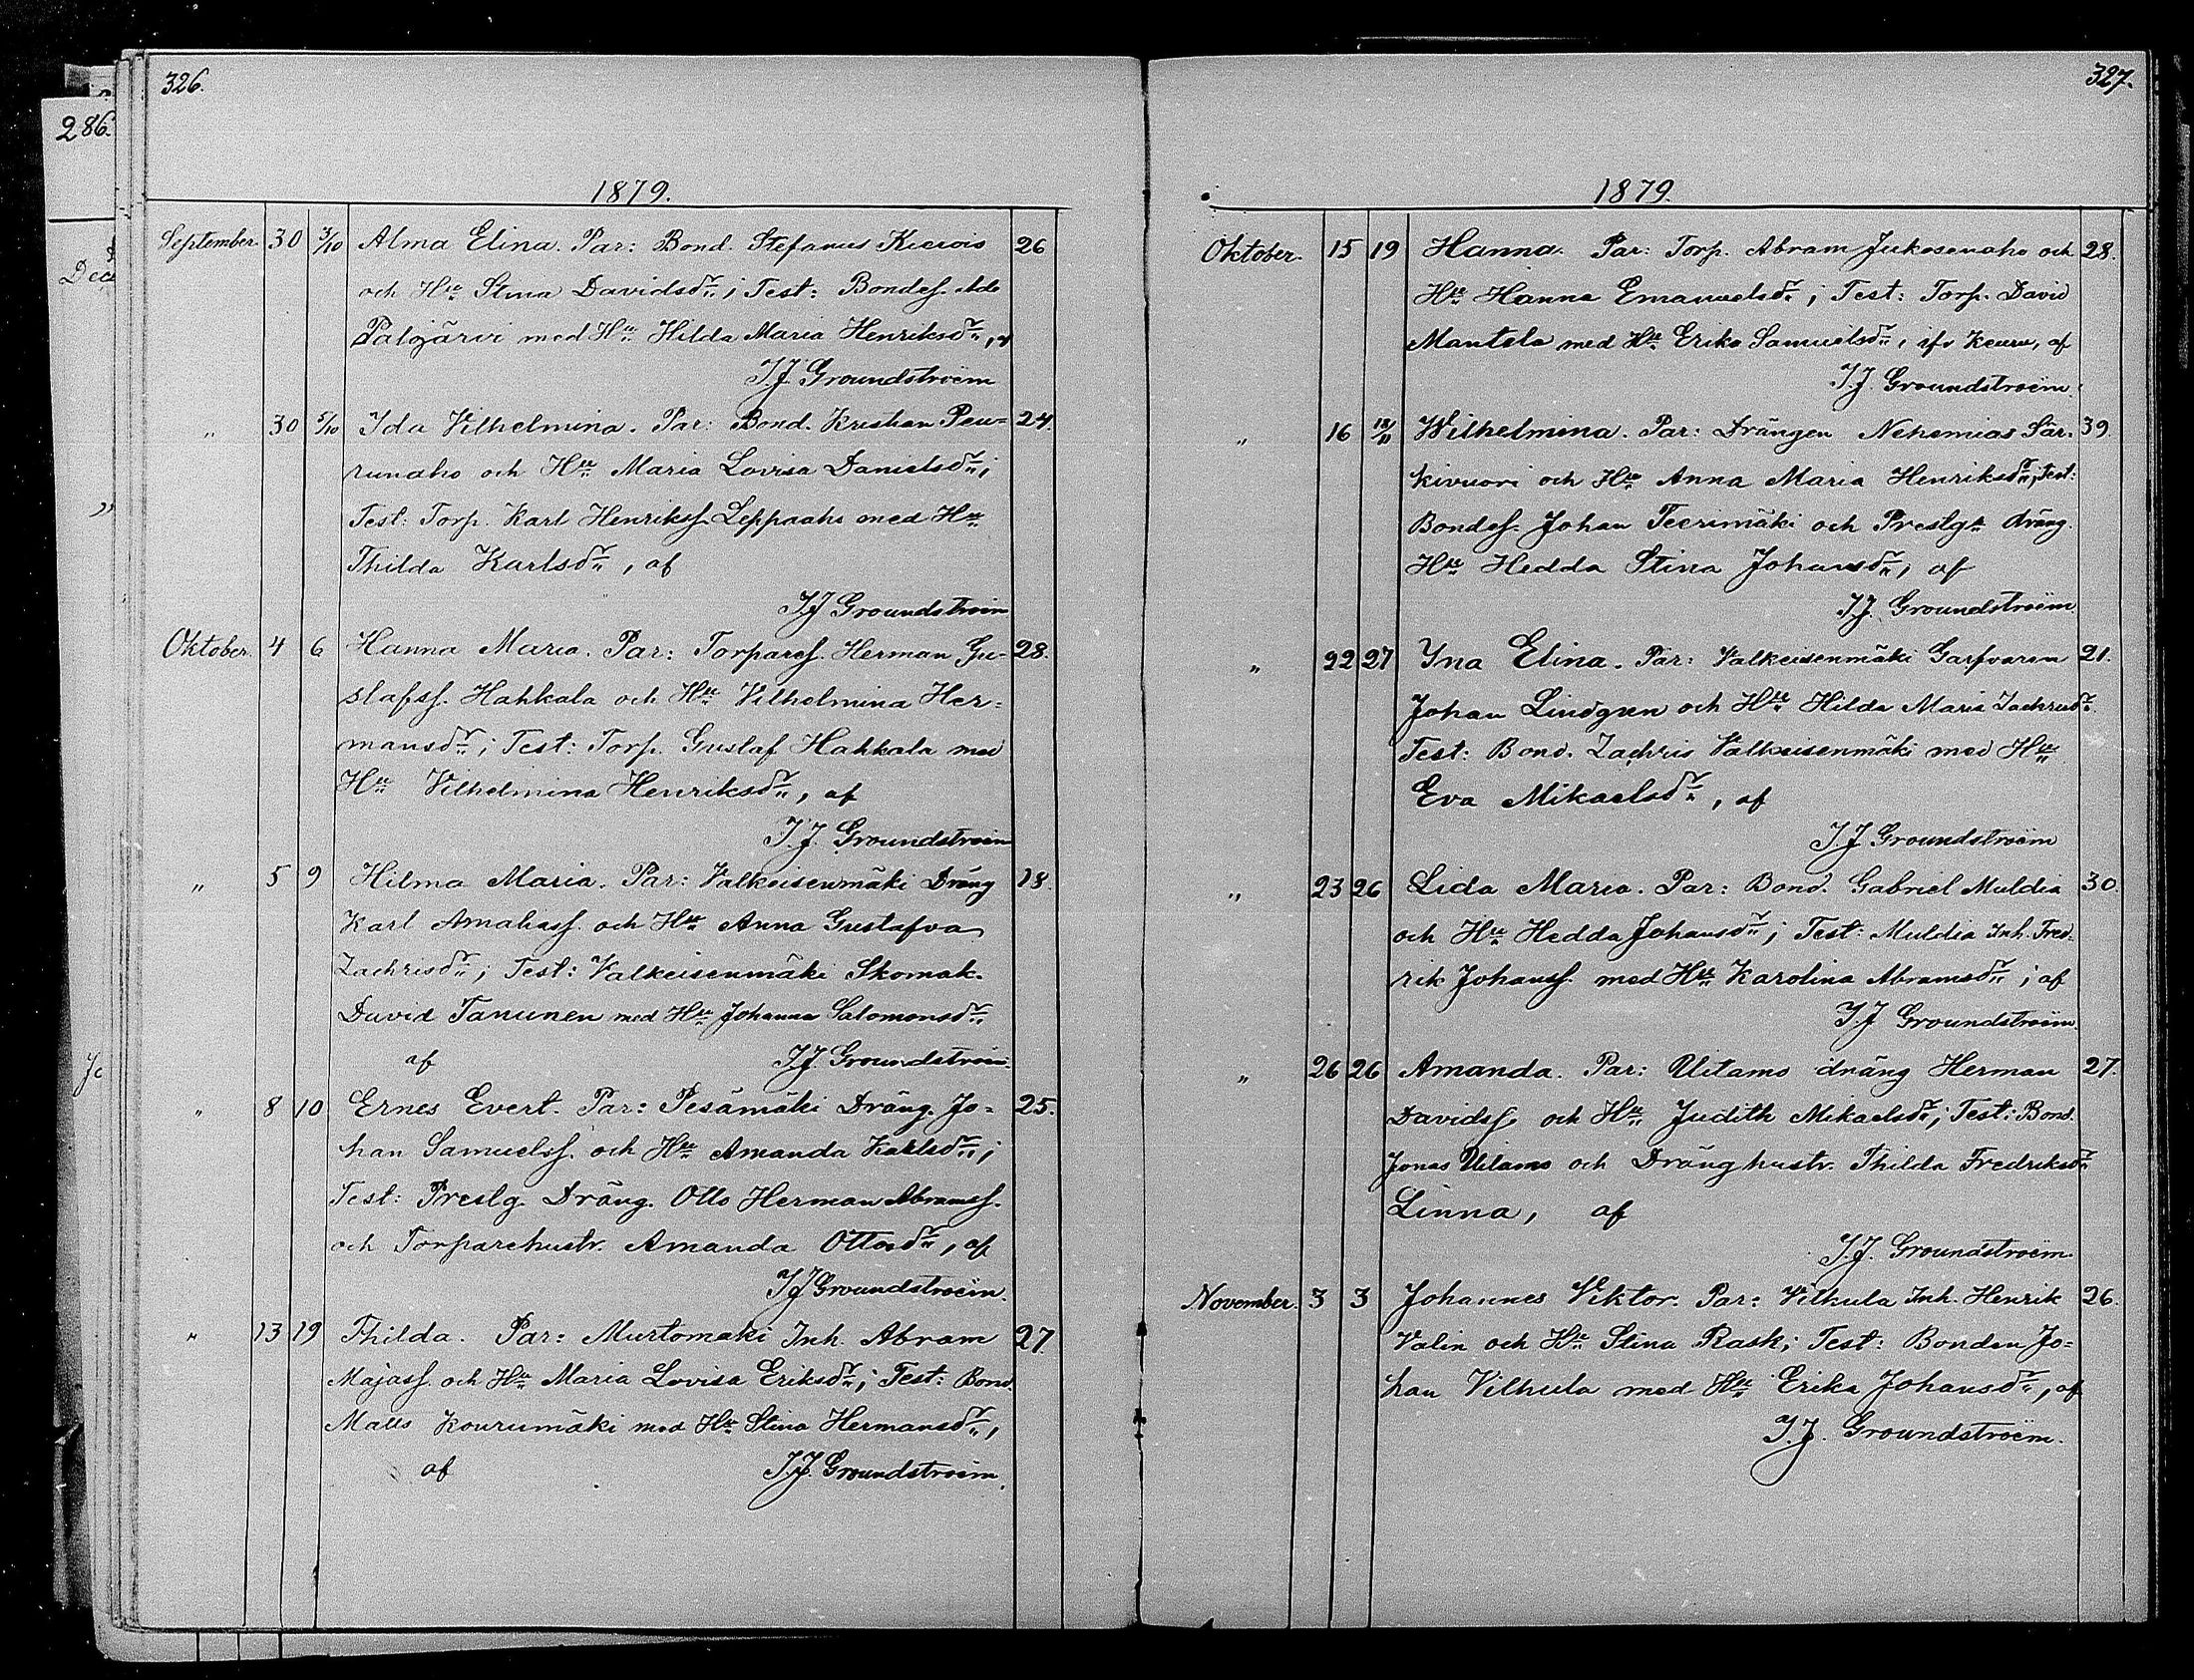 326.
286.
1879.
September. 30 3/10 Alma Elina. Par: Bond. Stefanus Kiviois 26
och Hu Stina Davidsdr; Test: Bondes. Ado
Palojärvi med Hu Hilda Maria Henriksdr, af
I.J. Groundstroëm
„ 30 5/10 Ida Vilhelmina. Par: Bond. Kristian Peu= 24.
runaho och Hu Maria Lovisa Danielsdr;
Test: Torp. Karl Henrikss. Leppaaho med Hu
Thilda Karlsdr, af
I.J Groundstroëm
Oktober. 4 6 Hanna Maria. Par: Torpares. Herman Gu- 28.
stafss. Hahkala och Hu Vilhelmina Her=
mansdr; Test: Torp. Gustaf Hahkala med
Hu Vilhelmina Henriksdr, af
I.J. Groundstroëm
„ 5 9 Hilma Maria. Par: Valkeisenmäki Dräng 18.
Karl Amaliass. och Hu Anna Gustafva
Zachrisdr; Test: Valkeisenmäki Skomak.
David Tanunen med Hu Johanna Salomonsdr
af I.J. Groundstroëm.
„ 8 10 Ernes Evert. Par: Pesämäki Dräng. Jo= 25.
han Samuelss. och Hu Amanda Karlsdr;
Test: Prestg. Dräng. Otto Herman Abramss.
och Torparehustr. Amanda Ottosdr, af
I J Groundstroëm.
„ 13 19 Thilda. Par: Murtomäki Inh. Abram 27.
Majass. och Hu Maria Lovisa Eriksdr; Test: Bond.
Matts Kourumäki med Hu Stina Hermansdr,
af I.J. Groundstroëm.
327.
1879.
Oktober. 15 19 Hanna. Par: Torp. Abram Jukosenaho och 28.
Hu Hanna Emanuelsdr; Test: Torp. David
Mantela med Hu Erika Samuelsdr, ifr Keuru, af
I.J. Groundstroëm.
„ 16 18/11 Wilhelmina. Par: Drängen Nehemias Sär= 39.
kivuori och Hu Anna Maria Henriksdr; Test:
Bondes. Johan Teerimäki och Prestgs dräng.
Hu Hedda Stina Johansdr, af
I.J. Groundstroëm.
„ 22 27 Ina Elina. Par: Valkeisenmäki Garfvaren 21.
Johan Lindgren och Hu Hilda Maria Zachrisdr.
Test: Bond. Zachris Valkeisenmäki med Hu
Eva Mikaelsdr, af
I.J Groundstroëm
„ 23 26 Lida Maria. Par: Bond. Gabriel Muldia 30.
och Hu Hedda Johansdr; Test: Muldia Inh. Fred-
rik Johanss. med Hu Karolina Abramsdr; af
I.J Groundstroëm.
„ 26 26 Amanda. Par: Uitamo dräng Herman 27.
Davidss. och Hu Judith Mikaelsdr; Test: Bond.
Jonas Uitamo och Dränghustr. Thilda Fredriksdr
Linna, af
I.J. Groundstroëm.
November. 3 3 Johannes Viktor. Par: Vilhula Inh. Henrik 26.
Valin och Hu Stina Rask; Test: Bonden Jo=
han Vilhula med Hu Erika Johansdr, af
I.J. Groundstroëm.